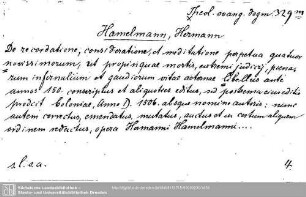 Theol. evang. dogm. 329 m
Hamelmann, Hermann
De recordatione, consideratione, et meditatione perpetua quatuor
novissimorum, ut propinquae mortis, extremi judicij, poenarum
infernalium et gaudiorum vitae aeternae libellus ante
annos 150. conscriptus et aliquoties editus, ad postremum eius editio
prodiit Coloniae, Anno D. 1506. absque nomine autoris: nunc
autem correctus, emendatus, mutatus, auctus et in certum aliquem
ordinem redactus, opera Hamanni Hamelmanni...
s.l.e.a.
4.
Sächsische Landesbibliothek -
Staats- und Universitätsbibliothek Dresden